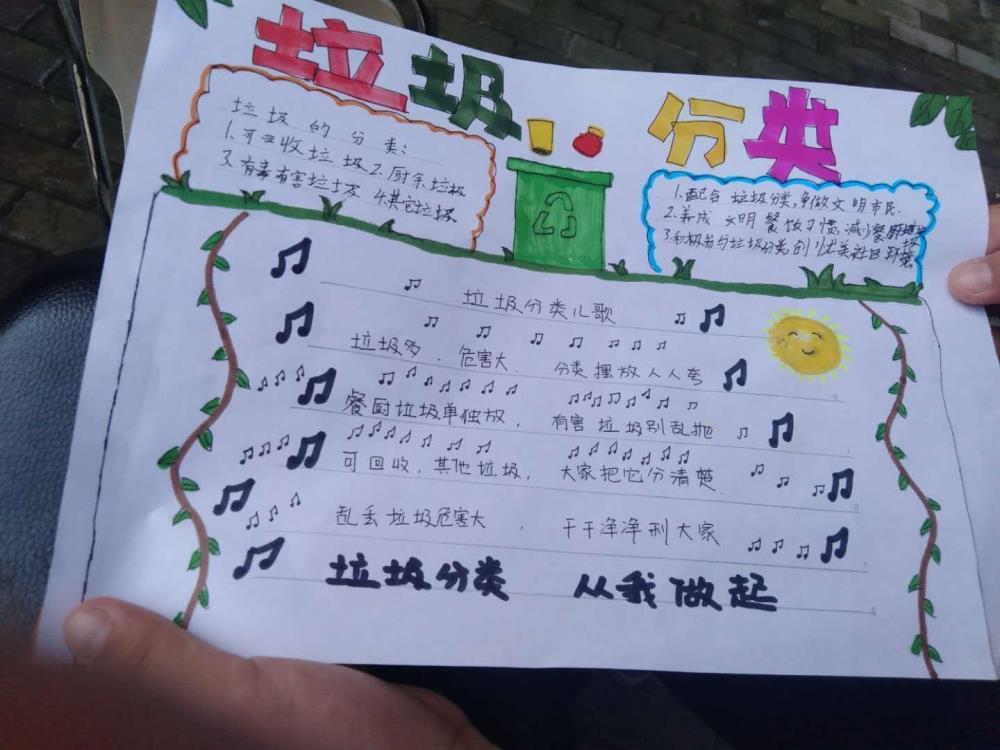 垃圾分类
垃圾的分类:
1.可回收垃圾2.厨余垃圾
3.有毒有害垃圾 4.其它垃圾
1.配合垃圾分类,争做文明市民.
2.养成文明餐饮习惯,减少餐厨垃圾
3.积极参与垃圾分类创优美社区环境
垃圾分类儿歌
垃圾多,危害大. 分类摆放人人夸
餐厨垃圾单独放, 有害垃圾别乱抛
可回收,其他垃圾, 大家把它分清楚
乱丢垃圾危害大, 干干净净利大家
垃圾分类 从我做起